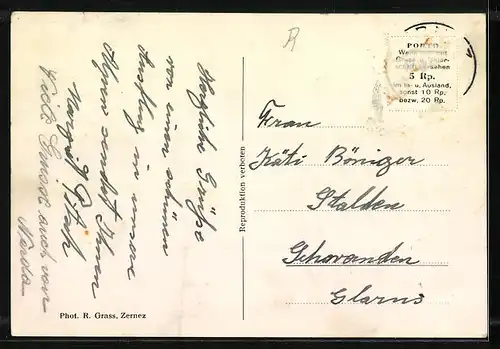 Herzliche Grüsse
von einem schönen
Ausflug in unsere
Heimat sendet Ihnen
Margrit
Viele Grüsse auch von
Reproduktion verboten
Phot. R. Grass, Zernez
PORTO
5 Rp.
im In- u. Ausland,
sonst 10 Rp.
bezw. 20 Rp.
Frau
Käti Böniger
Stalden
Schwanden
Glarus